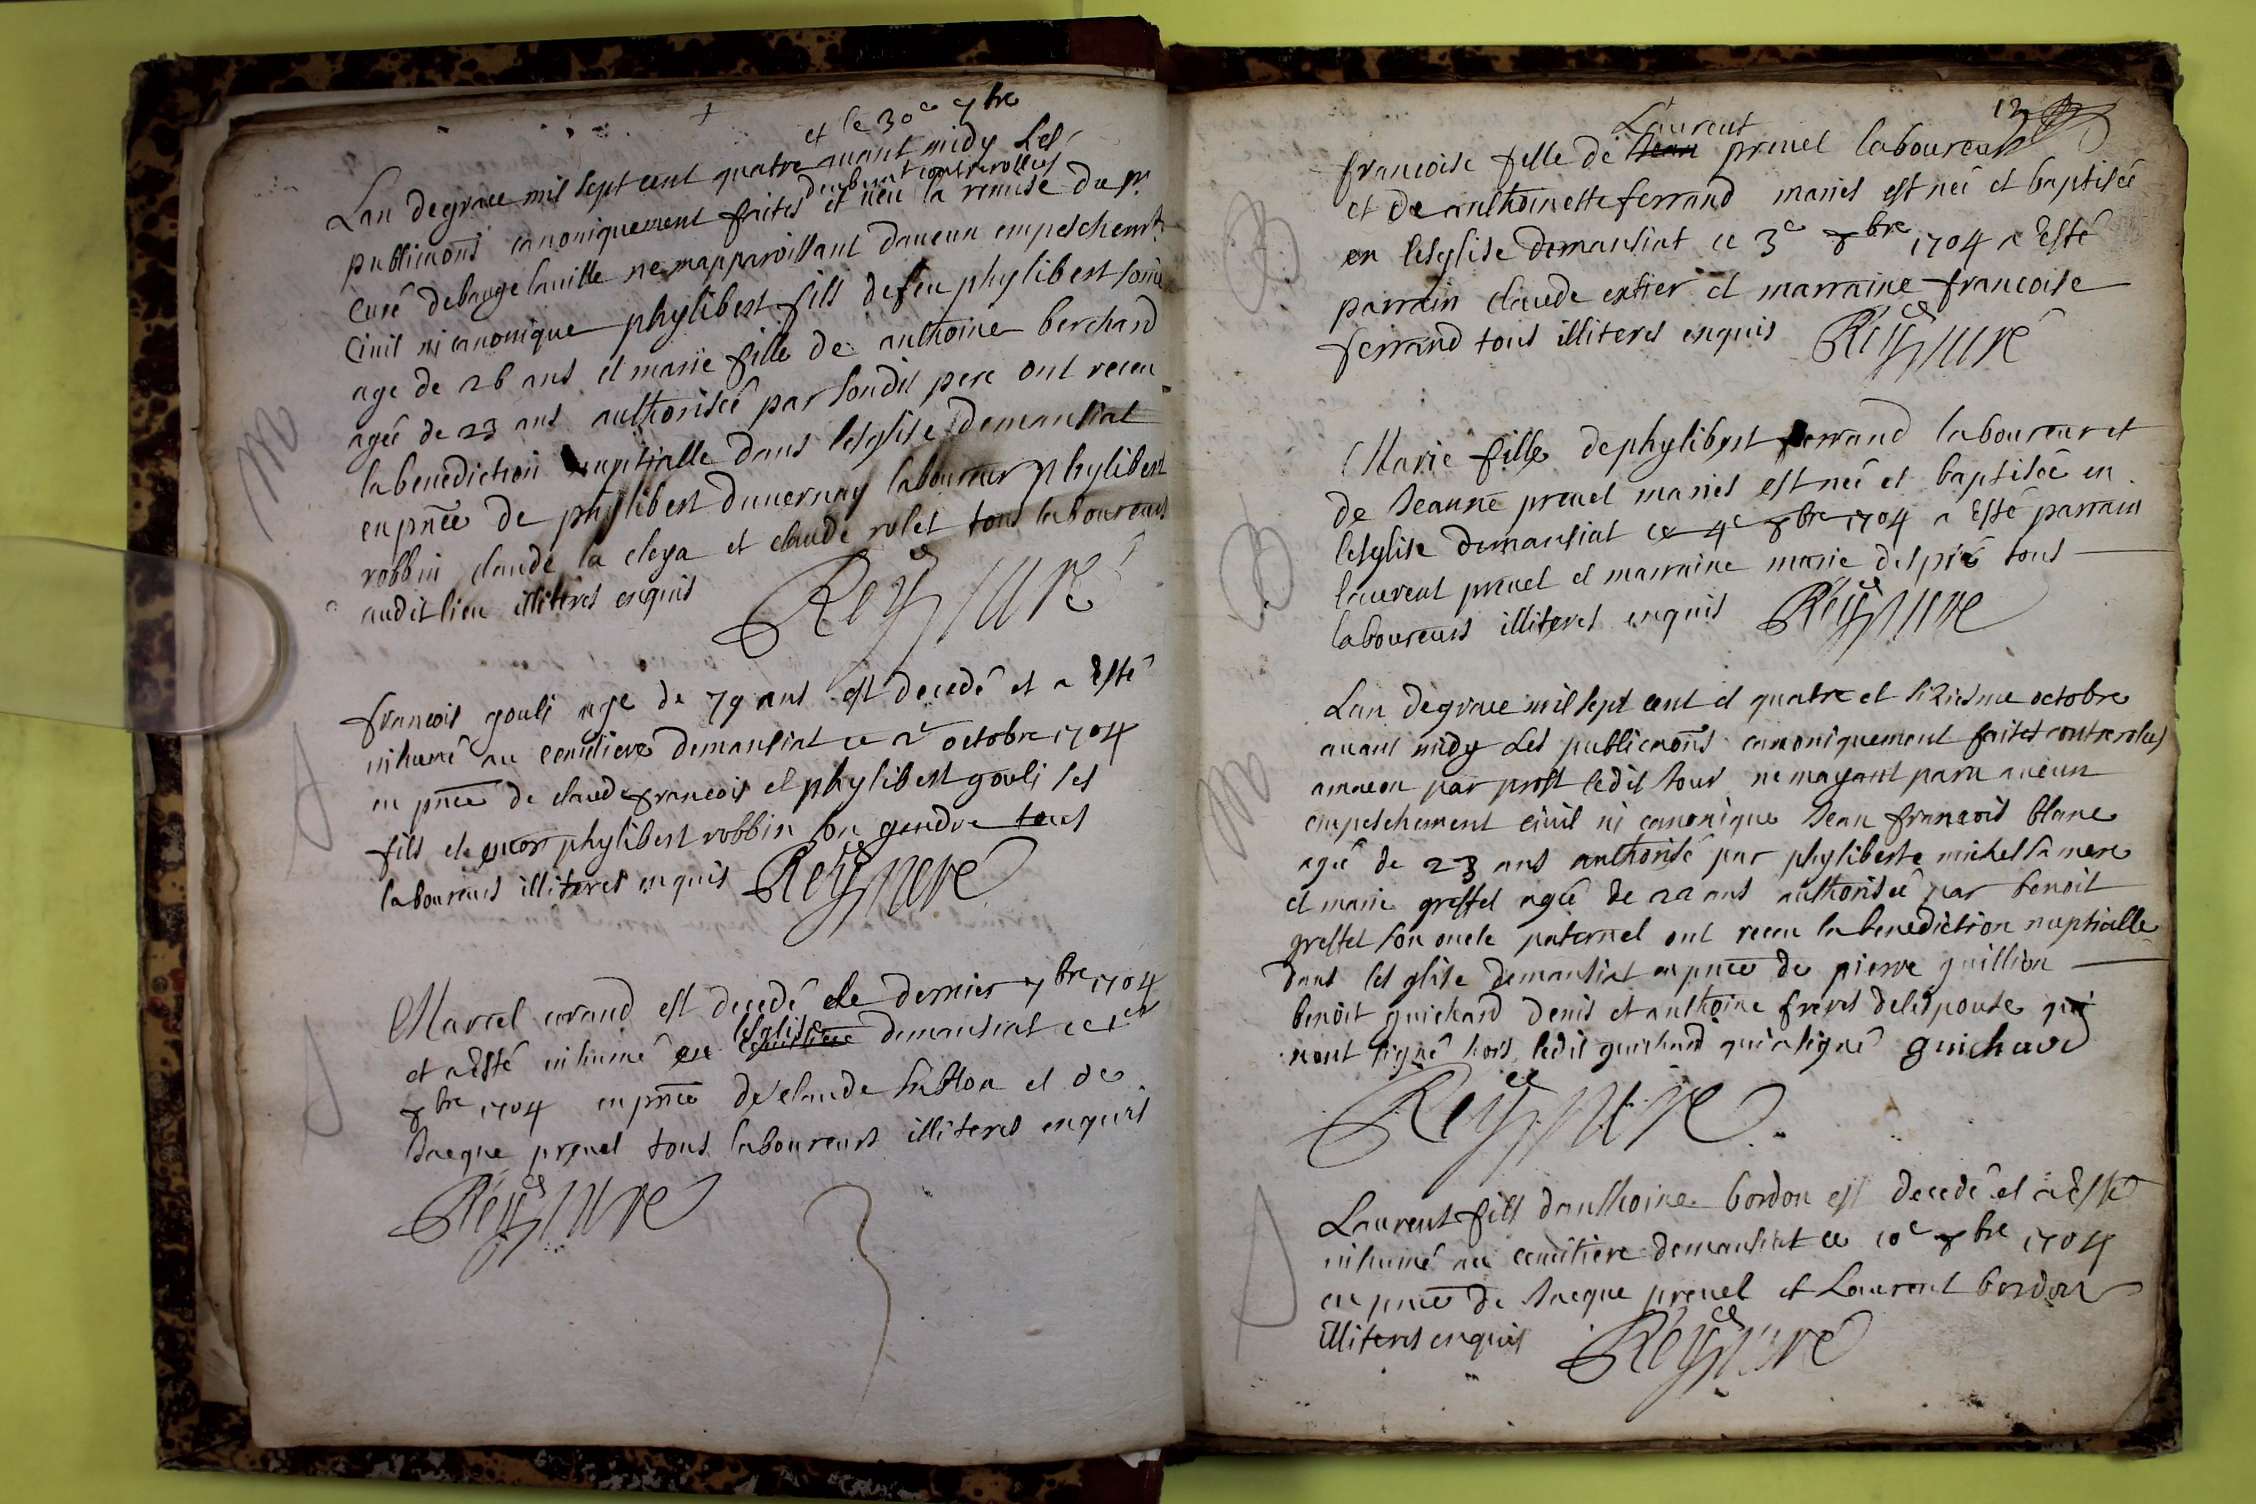 et le 30e 7bre
Lan de grace mil sept cent quatre auant midy Les
publicaons canoniquement faites et veu la remise du Sr
Curé de bauge la uille ne mapparoissant daucun empeschemt
Ciuil ni canonique phylibert fils de feu phylibert
age de 26 ans et marie fille de anthoine berchard
ageé de 23 ans authorisée par sondit pere ont receu
la benediction nuptialle dans lesglise demansiat
en pnce de phylibert duuernay laboureur phylibert
robbin claude la cloya et claude rolet tous laboureurs
audit lieu illiteres enquis Rey Curé
M
francois gouli age de 79 ans est decedé et a Esté
inhumé au cemitiere demansiat ce 2e octobre 1704
en pnce de claude francois et phylibert gouli ses
fils et encor phylibert robbin son gendre tous
laboureurs illiteres enquis Rey Curé
S
Marcel corand est decedé le dernier 7bre 1704
et a Esté inhumé en lesglise demansiat ce 1er
8bre 1704 en pnce de claude sublon et de
Jacque preuel tous laboureurs illiteres enquis
Rey Curé
S
12
Laurent
francoise fille de Jean preuel laboureur
et de anthoinette ferrand mariés est neé et baptisée
en lesglise demansiat ce 3e 8bre 1704 a Esté
parrain claude extier et marraine francoise
ferrand tous illiteres enquis Rey Curé
B
Marie fille de phylibert ferrand laboureur et
de Jeanne preuel mariés est neé et baptisée en
lesglise demansiat ce 4e 8bre 1704 a Esté parrain
laurent preuel et marraine marie despié tous
laboureurs illiteres enquis Rey Curé
B
Lan de grace mil sept cent et quatre et siziesme octobre
auant midy Les publicaons canoniquement faites controlees
amacon par prost ledit jour ne mayant paru aucun
empeschement ciuil ni canonique Jean francois blanc
ageé de 23 ans authorisé par phyliberte michel sa mere
et marie greffet ageé de 22 ans authorisée par benoit
greffet son oncle paternel ont receu la benediction nuptialle
dans lesglise demansiat en pnce de pierre guillion
benoit guichard denis et anthoine freres delespouse qui
nont signé hors ledit guichard qui a signé guichard
Rey Curé
M
Laurent fils danthoine bordon est decedé et a Esté
inhumé au cemitiere demansiat ce 10e 8bre 1704
en pnce de Jacque preuel et Laurent bordon
illiteres enquis Rey Curé
S